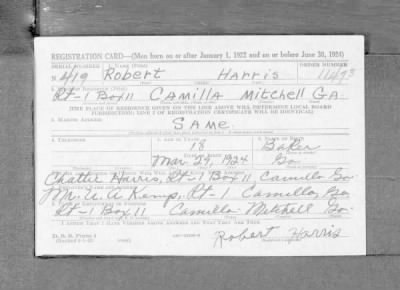 REGISTRATION CARD—(Men born on or after January 1, 1922 and on or before June 30, 1924)
SERIAL NUMBER 1. NAME (Print) ORDER NUMBER
N 419 Robert Harris 11493
Rt-1 Box 11 CAMILLA Mitchell GA
[THE PLACE OF RESIDENCE GIVEN ON THE LINE ABOVE WILL DETERMINE LOCAL BOARD
JURISDICTION; LINE 2 OF REGISTRATION CERTIFICATE WILL BE IDENTICAL]
3. MAILING ADDRESS
SAME
4. TELEPHONE
18 Baker
Mar. 24, 1924 Ga
Chattie Harris, Rt-1 Box 11, Camilla Ga
Mr. A. A Kemp, Rt-1 Camilla, Ga.
Rt-1 Box 11 Camilla Mitchell Ga.
I AFFIRM THAT I HAVE VERIFIED ABOVE ANSWERS AND THAT THEY ARE TRUE.
D. S. S. Form 1
Robert Harris